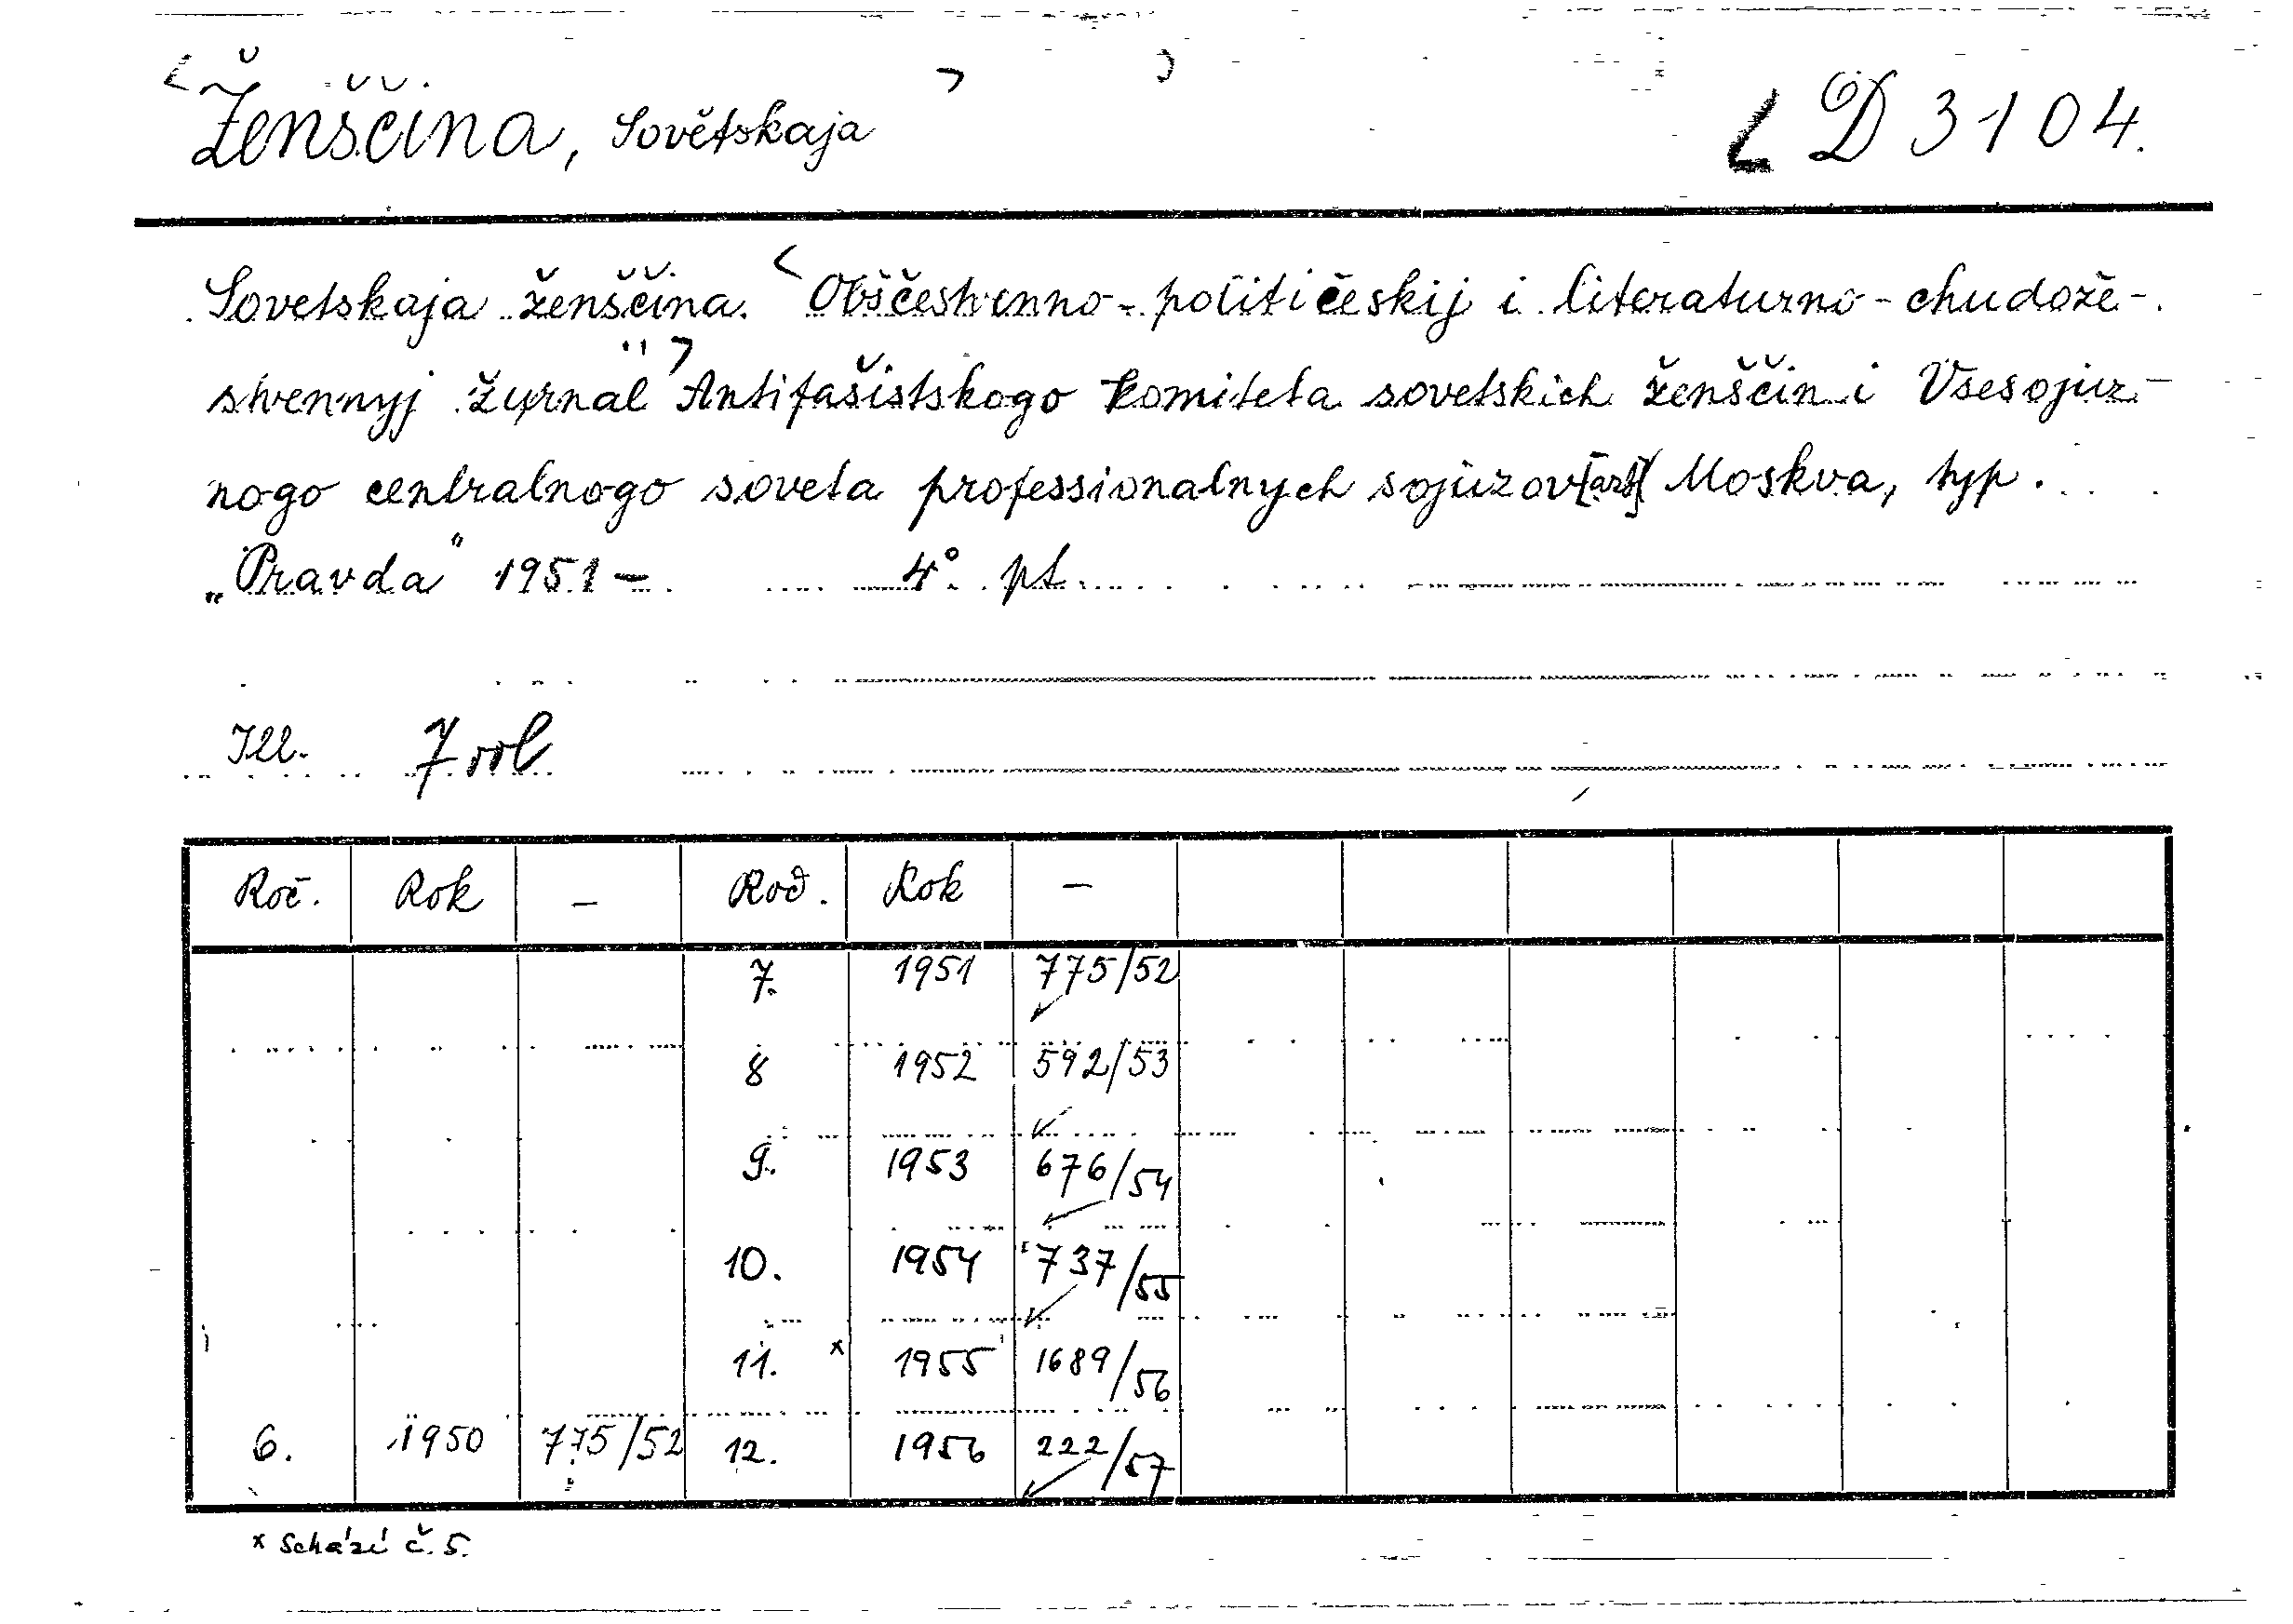 Ženščina, Sovětskaja D 3104.
Sovetskaja ženščina. Obščestvenno-političeskij i literaturno-chudože-
stvennyj žurnal Antifašistskogo komiteta sovetskich ženščin i Vsesojuz-
nogo centralnogo soveta professionalnych sojuzov Moskva, typ.
„Pravda" 1951- 4° pt.
Ill. 7 vol
Roč. Rok - Roč. Rok -
7. 1951 775/52
8 1952 592/53
9. 1953 676/54
10. 1954 737/55
11. x 1955 1689/56
6. 1950 775/52 12. 1956 222/57
x Schází č. 5.